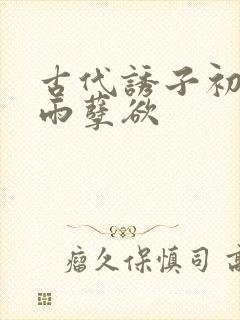 古代誘子初
雨孽欲
瘤久保慎司 高